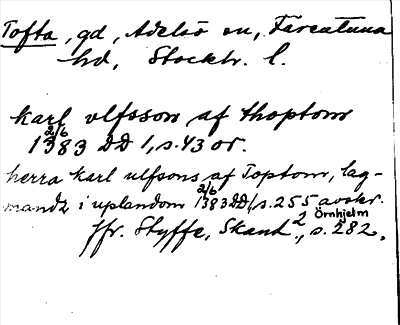 Tofta, gd, Adelsö sn, Färentuna
hd, Stockh. l.
karl vlfsson af thoptom
2/6
1383 DD 1, s. 43 or.
herra karl ulfsons af Toptom, lag-
mandz i uplandom 2/6 1383 DD 1, s. 255 avskr.
Örnhjelm
Jfr. Styffe, Skand.2, s. 282.